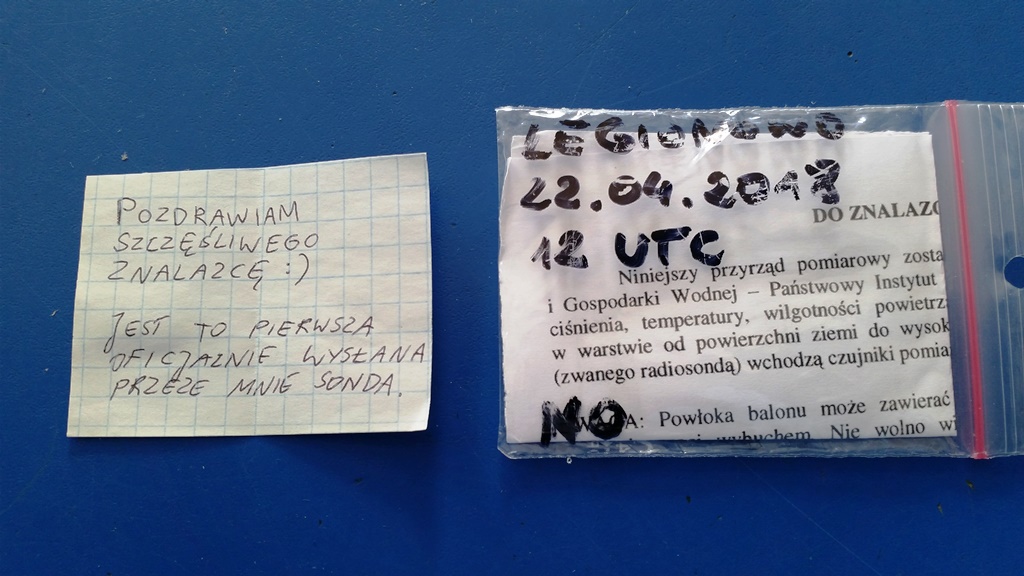 POZDRAWIAM
SZCZĘŚLIWEGO
ZNALAZCĘ :)
JEST TO PIERWSZA
OFICJALNIE WYSŁANA
PRZEZE MNIE SONDA.
LEGIONOWO
22.04.2018
12 UTC
DO ZNALAZC
Niniejszy przyrząd pomiarowy zosta
i Gospodarki Wodnej – Państwowy Instytut
ciśnienia, temperatury, wilgotności powietrz
w warstwie od powierzchni ziemi do wysok
(zwanego radiosondą) wchodzą czujniki pomia
NO
UWAGA: Powłoka balonu może zawierać
wybuchem. Nie wolno wi